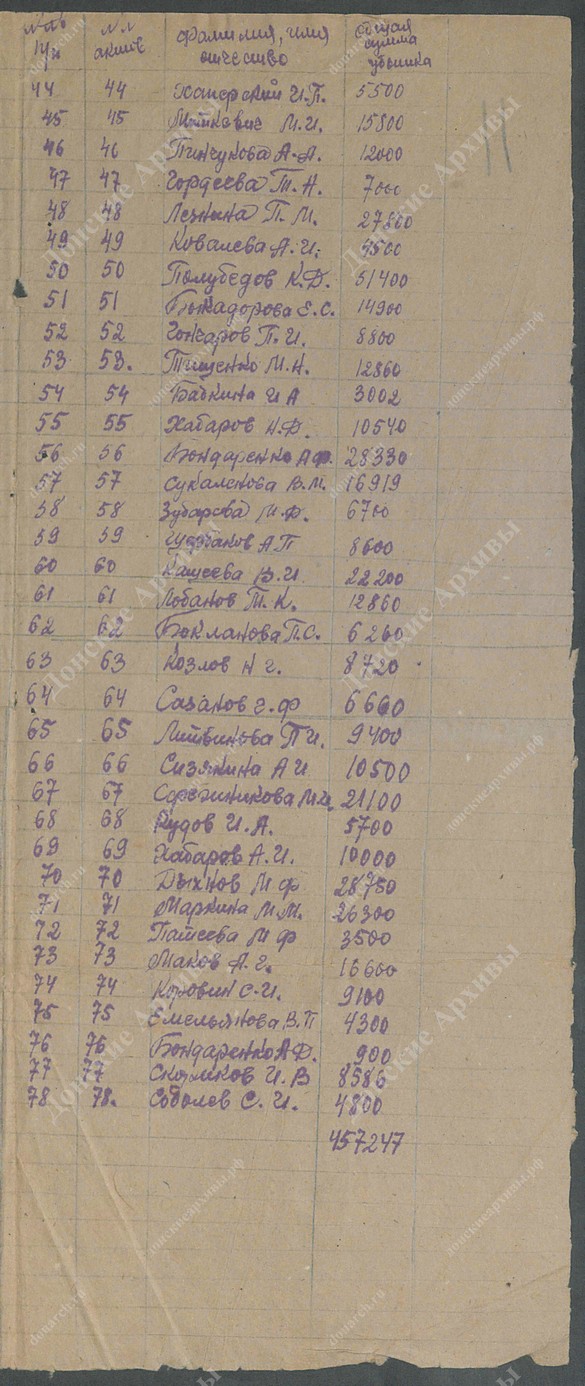 №№ п/п №№ актов Фамилия, имя отчество Общая сумма убытка
11
44 44 Хаперский И.П. 5500
45 45 Мишкевич М.И. 15800
46 46 Пинчукова А.А. 12000
47 47 Гордеева Т.Н. 7000
48 48 П.М. 27800
49 49 Ковалева А.И. 4500
50 50 Полубедов К.Д. 51400
51 51 Божадорова Е.С. 14900
52 52 Гончаров П.И. 8800
53 53. Тищенко М.Н. 12860
54 54 Бабкина И А 3002
55 55 Хабаров Н.Ф. 10540
56 56 Бондаренко А Ф. 28330
57 57 Сукаленова В.М. 16919
58 58 Зубарева М.Ф. 6700
59 59 А П 8600
60 60 Кащеева В.И 22200
61 61 Лобанов Т.К. 12860
62 62 Бокланова П.С. 6260
63 63 Козлов Н г. 8720
64 64 Сазанов г.ф 6660
65 65 Литвинова П И. 9400
66 66 Сизякина А И 10500
67 67 М.И. 21100
68 68 Рудов И.А. 5700
69 69 Хабаров А.И. 10000
70 70 Дыхнов М ф 28750
71 71 Маркина М.М. 26300
72 72 Пашеева М ф 3500
73 73 Маков А.г. 16600
74 74 Коровин С.И. 9100
75 75 Емельянова В.П 4300
76 76 Бондаренко А Ф. 900
77 77 И.В 8586
78 78. Соболев С.И. 4800
457247
Донские Архивы
donarch.ru
донскиеархивы.рф